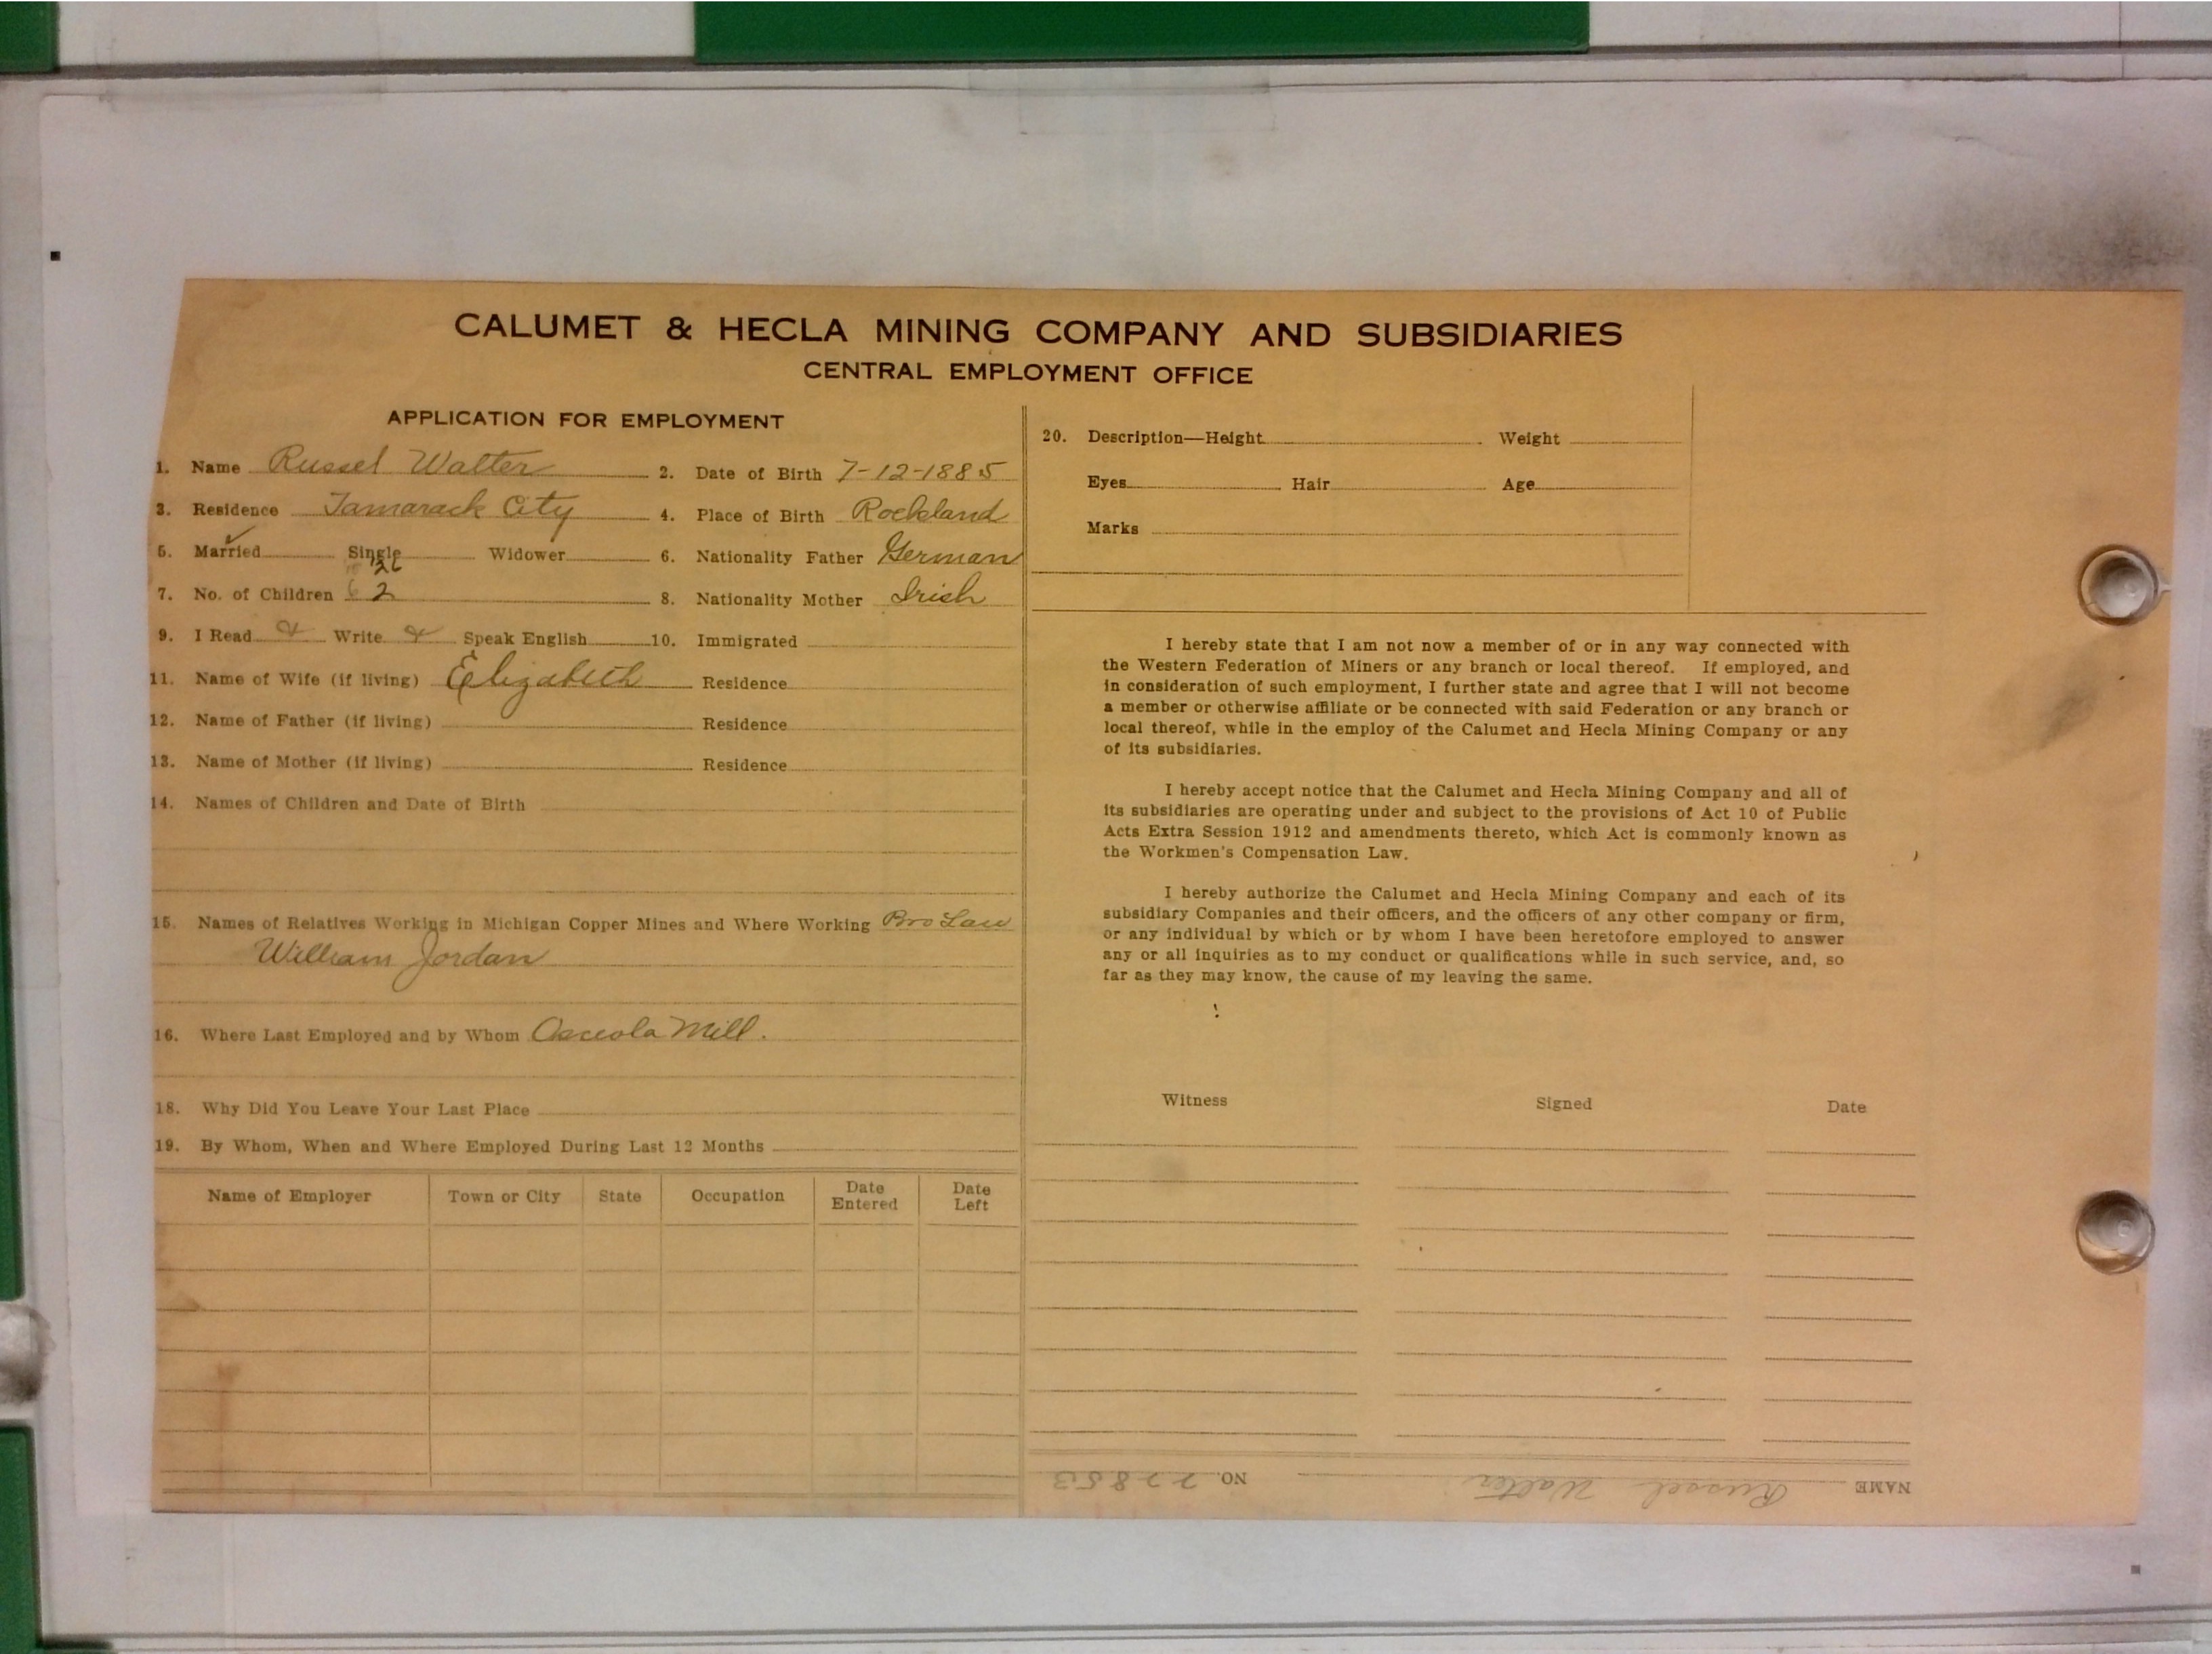 CALUMET & HECLA MINING COMPANY AND SUBSIDIARIES
CENTRAL EMPLOYMENT OFFICE
APPLICATION FOR EMPLOYMENT
1. Name Russel Walter 2. Date of Birth 7-12-1885
3. Residence Tamarack City 4. Place of Birth Rockland
5. Married ✓ Single Widower 6. Nationality Father German
7. No. of Children 2 8. Nationality Mother Irish
9. I Read & Write & Speak English 10. Immigrated
11. Name of Wife (if living) Elizabeth Residence
12. Name of Father (if living) Residence
13. Name of Mother (if living) Residence
14. Names of Children and Date of Birth
15. Names of Relatives Working in Michigan Copper Mines and Where Working Bro Law
William Jordan
16. Where Last Employed and by Whom Osceola Mill.
18. Why Did You Leave Your Last Place
19. By Whom, When and Where Employed During Last 12 Months
Name of Employer Town or City State Occupation Date Entered Date Left
20. Description—Height Weight
Eyes Hair Age
Marks
I hereby state that I am not now a member of or in any way connected with
the Western Federation of Miners or any branch or local thereof. If employed, and
in consideration of such employment, I further state and agree that I will not become
a member or otherwise affiliate or be connected with said Federation or any branch or
local thereof, while in the employ of the Calumet and Hecla Mining Company or any
of its subsidiaries.
I hereby accept notice that the Calumet and Hecla Mining Company and all of
its subsidiaries are operating under and subject to the provisions of Act 10 of Public
Acts Extra Session 1912 and amendments thereto, which Act is commonly known as
the Workmen's Compensation Law.
I hereby authorize the Calumet and Hecla Mining Company and each of its
subsidiary Companies and their officers, and the officers of any other company or firm,
or any individual by which or by whom I have been heretofore employed to answer
any or all inquiries as to my conduct or qualifications while in such service, and, so
far as they may know, the cause of my leaving the same.
Witness Signed Date
NAME Russel Walter NO. 22853